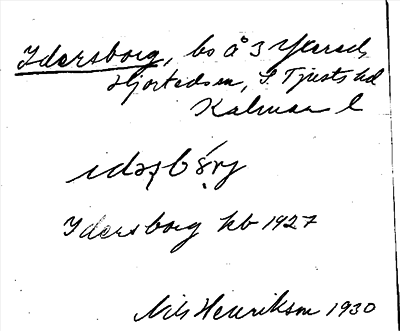 Idersborg, bs å 3 Ykersch
Hjorteds sn, S. Tjusts hd
Kalmar l
Idersborg kb 1927
Nils Henrikson 1930